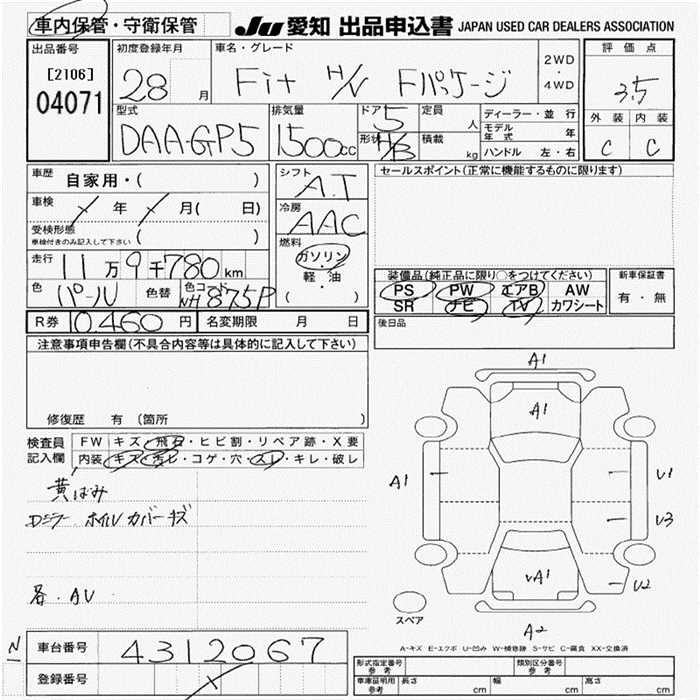 車内保管・守衛保管
JU 愛知 出品申込書 JAPAN USED CAR DEALERS ASSOCIATION
出品番号
[2106]
04071
初度登録年月
28 月
車名・グレード
Fit H/V Fパッケージ
2WD
・
4WD
評価点
3.5
外装 内装
C C
型式
DAA-GP5
排気量
1500cc
ドア 5
形状 H/B
定員 人
積載 kg
ディーラー・並行
モデル年式 年
ハンドル 左・右
車歴 自家用・( )
車検 年 月( 日)
受検形態
車検付きのみ記入して下さい ( )
走行 11万9千780km
色 パール 色替 色コード NH875P
シフト
A.T
冷房
AAC
燃料
ガソリン
軽・油
( )
セールスポイント(正常に機能するものに限ります)
装備品(純正品に限り○をつけてください)
PS PW エアB AW
SR ナビ TV カワシート
新車保証書
有・無
後日品
R券 10460円 名変期限 月 日
注意事項申告欄(不具合内容等は具体的に記入して下さい)
修復歴 有 (箇所 )
検査員記入欄
FW キズ・飛石・ヒビ割・リペア跡・X要
内装 キズ・汚レ・コゲ・穴・スレ・キレ・破レ
黄ばみ
Dミラー ホイルカバーキズ
各.AU
A1
A1
A1
U1
U3
U2
VA1
A2
スペア
A-キズ E-エクボ U-凹み W-補修跡 S-サビ C-腐食 XX-交換済
N
車台番号 4312067
登録番号
形式指定番号 参考
類別区分番号 参考
車庫証明用 参考 長さ cm 幅 cm 高さ cm